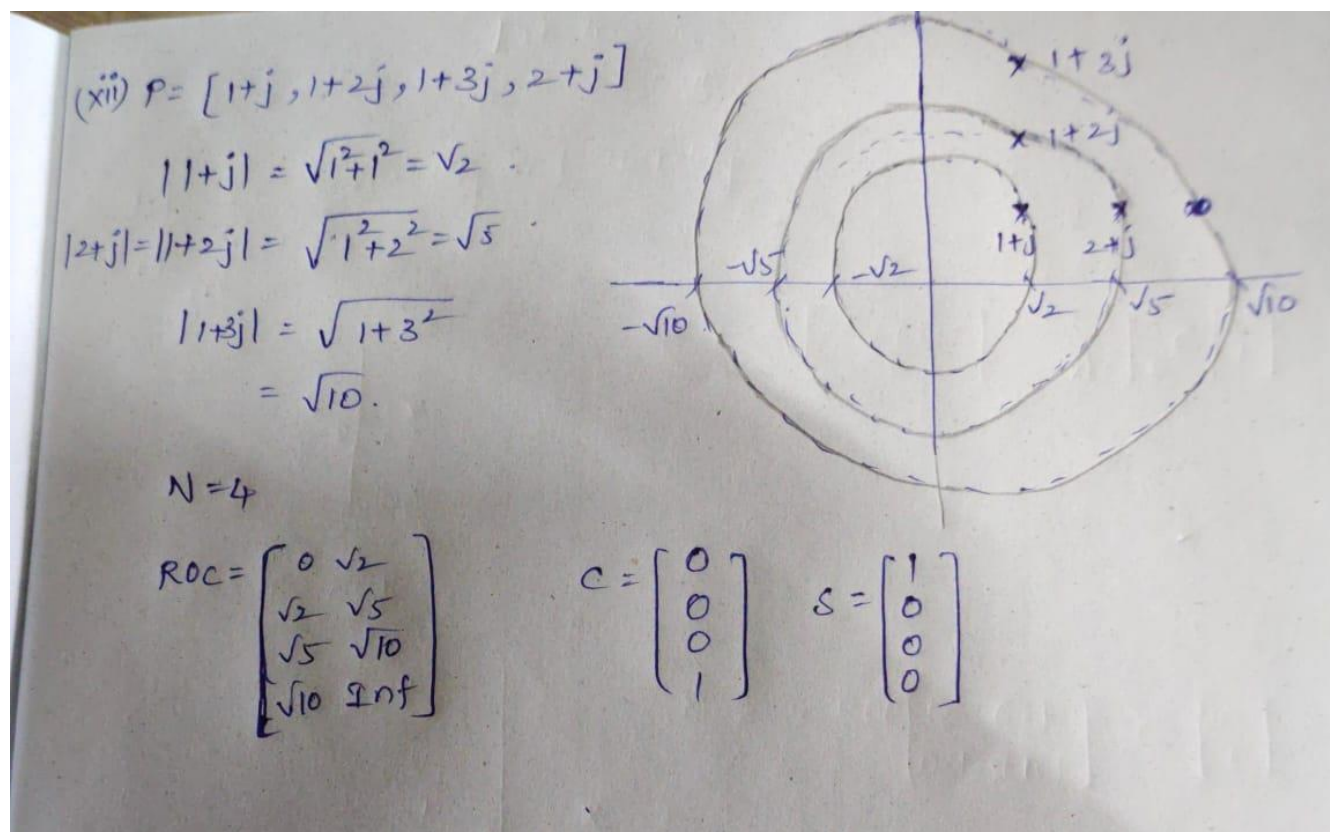 (xii) P = [1+j, 1+2j, 1+3j, 2+j]
|1+j| = √1²+1² = √2.
|2+j| = |1+2j| = √1²+2² = √5.
|1+3j| = √1+3²
= √10.
N = 4
ROC = [0 √2
√2 √5
√5 √10
√10 Inf]
C = [0
0
0
1]
S = [1
0
0
0]
1+3j
1+2j
1+j
2+j
-√5
-√2
√2
√5
√10
-√10